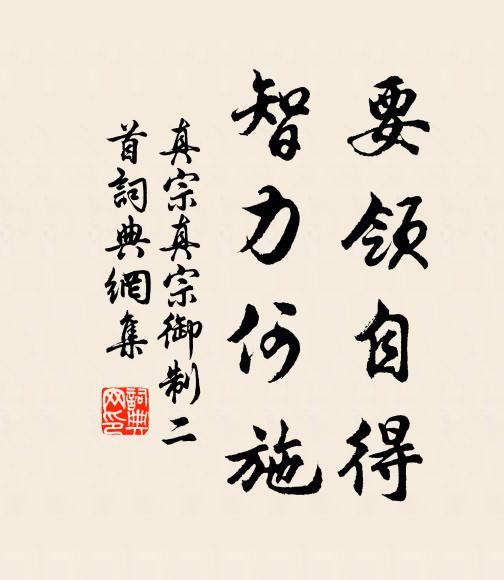 要領自得
智力何施
真宗真宗御制二
首詞典網集
詞典
网印